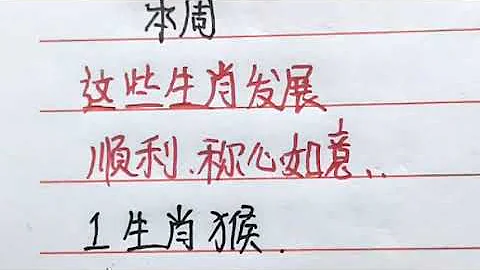 本周
这些生肖发展
顺利、称心如意..
1生肖猴.